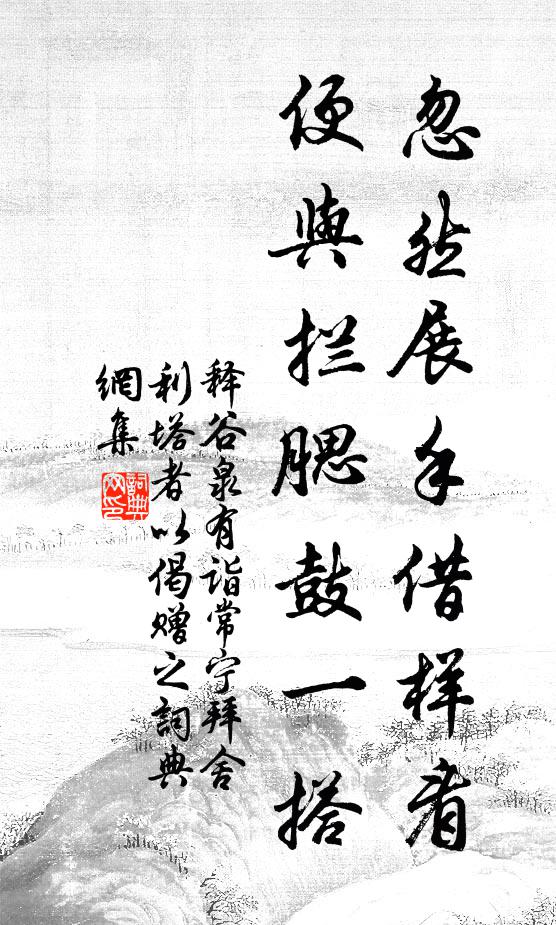 忽然展手借样看
便与拦腮鼓一搭
释谷泉有诣常宁拜舍
利塔者以偈赠之词典
網集
詞典網印